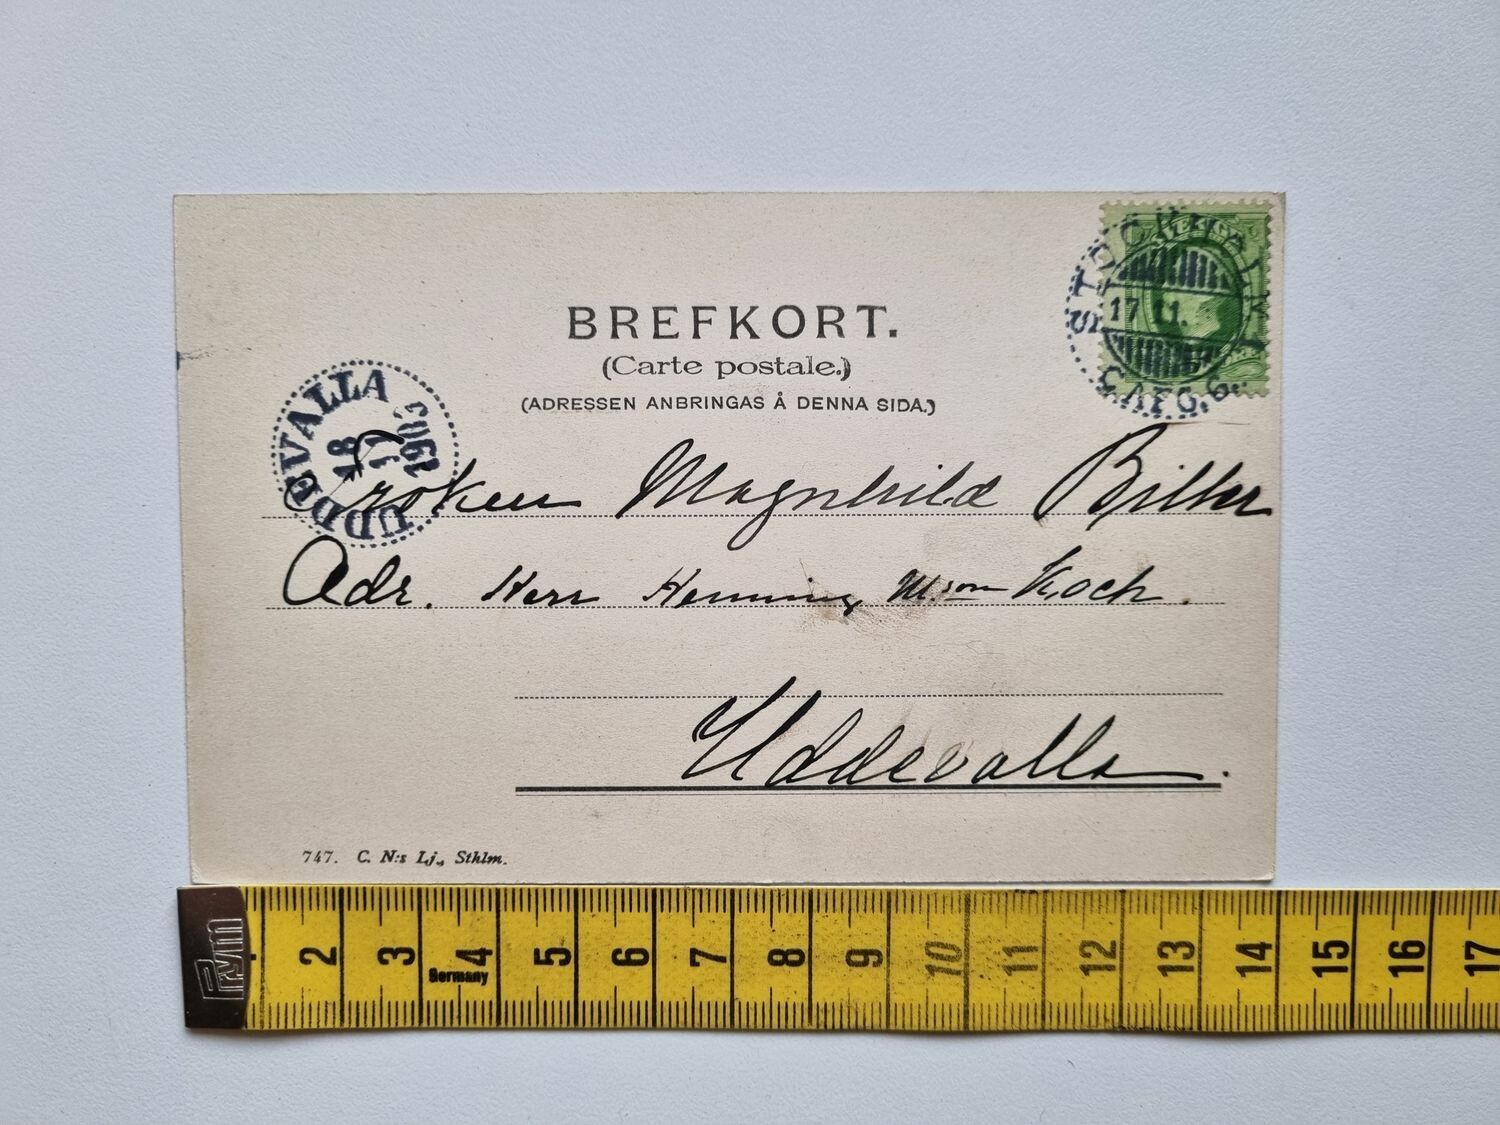 BREFKORT.
(Carte postale.)
(ADRESSEN ANBRINGAS Å DENNA SIDA.)
STOCKHOLM 1
17 11.
UDDEVALLA
18
11
1903
Fröken Magnhild
Adr. Herr Henning M:son Koch.
Uddevalla.
747. C. N:s Lj., Sthlm.
Prym
2 3 4 5 6 7 8 9 10 11 12 13 14 15 16 17
Germany